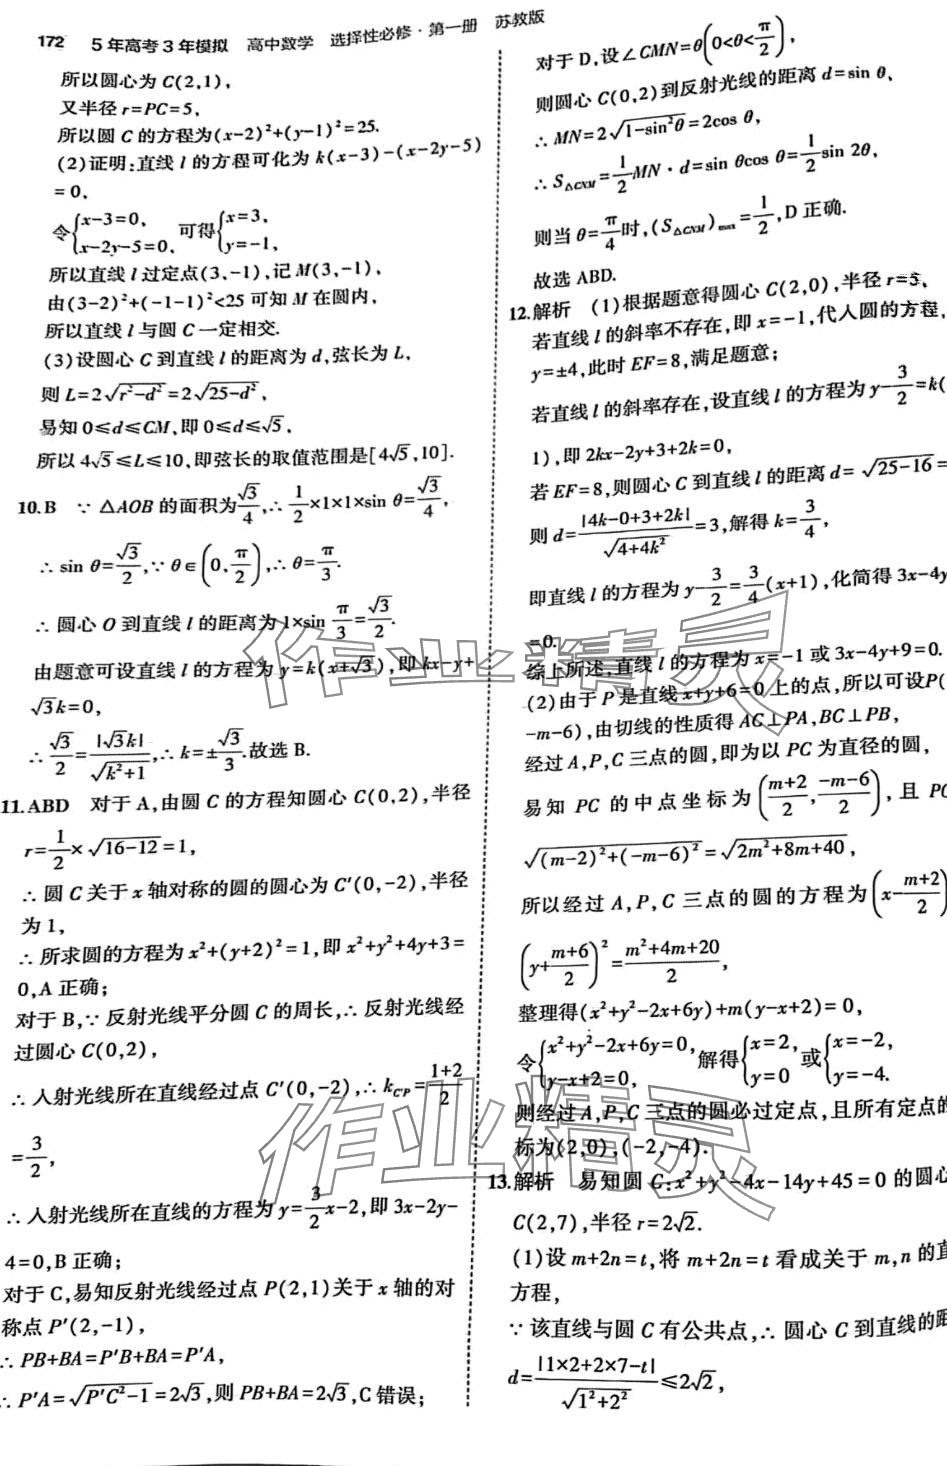 172 5年高考3年模拟 高中数学 选择性必修·第一册 苏教版
所以圆心为C(2,1),
又半径r=PC=5,
所以圆C的方程为(x-2)²+(y-1)²=25.
(2)证明:直线l的方程可化为k(x-3)-(x-2y-5)
=0,
令{x-3=0, x-2y-5=0, 可得{x=3, y=-1,
所以直线l过定点(3,-1),记M(3,-1),
由(3-2)²+(-1-1)²<25可知M在圆内,
所以直线l与圆C一定相交.
(3)设圆心C到直线l的距离为d,弦长为L,
则L=2√(r²-d²)=2√(25-d²),
易知0≤d≤CM,即0≤d≤√5,
所以4√5≤L≤10,即弦长的取值范围是[4√5,10].
10.B ∵△AOB的面积为√3/4,∴1/2×1×1×sin θ=√3/4,
∴sin θ=√3/2,∵θ∈(0,π/2),∴θ=π/3.
∴圆心O到直线l的距离为1×sin π/3=√3/2.
由题意可设直线l的方程为y=k(x+√3),即kx-y+
√3k=0,
∴√3/2=|√3k|/√(k²+1),∴k=±√3/3.故选B.
11.ABD 对于A,由圆C的方程知圆心C(0,2),半径
r=1/2×√(16-12)=1,
∴圆C关于x轴对称的圆的圆心为C'(0,-2),半径
为1,
∴所求圆的方程为x²+(y+2)²=1,即x²+y²+4y+3=
0,A正确;
对于B,∵反射光线平分圆C的周长,∴反射光线经
过圆心C(0,2),
∴入射光线所在直线经过点C'(0,-2),∴k_C'P=(1+2)/2
=3/2,
∴入射光线所在直线的方程为y=3/2x-2,即3x-2y-
4=0,B正确;
对于C,易知反射光线经过点P(2,1)关于x轴的对
称点P'(2,-1),
∴PB+BA=P'B+BA=P'A,
∴P'A=√(P'C²-1)=2√3,则PB+BA=2√3,C错误;
对于D,设∠CMN=θ(0<θ<π/2),
则圆心C(0,2)到反射光线的距离d=sin θ,
∴MN=2√(1-sin²θ)=2cos θ,
∴S△CNM=1/2MN·d=sin θcos θ=1/2sin 2θ,
则当θ=π/4时,(S△CNM)max=1/2,D正确.
故选ABD.
12.解析 (1)根据题意得圆心C(2,0),半径r=5,
若直线l的斜率不存在,即x=-1,代入圆的方程,
y=±4,此时EF=8,满足题意;
若直线l的斜率存在,设直线l的方程为y-3/2=k(
1),即2kx-2y+3+2k=0,
若EF=8,则圆心C到直线l的距离d=√(25-16)=
则d=|4k-0+3+2k|/√(4+4k²)=3,解得k=3/4,
即直线l的方程为y-3/2=3/4(x+1),化简得3x-4y
=0.
综上所述,直线l的方程为x=-1或3x-4y+9=0.
(2)由于P是直线x+y+6=0上的点,所以可设P(
-m-6),由切线的性质得AC⊥PA,BC⊥PB,
经过A,P,C三点的圆,即为以PC为直径的圆,
易知PC的中点坐标为((m+2)/2,(-m-6)/2),且PC
√((m-2)²+(-m-6)²)=√(2m²+8m+40),
所以经过A,P,C三点的圆的方程为(x-(m+2)/2)
(y+(m+6)/2)²=(m²+4m+20)/2,
整理得(x²+y²-2x+6y)+m(y-x+2)=0,
令{x²+y²-2x+6y=0, y-x+2=0, 解得{x=2, y=0或{x=-2, y=-4.
则经过A,P,C三点的圆必过定点,且所有定点的
标为(2,0),(-2,-4).
13.解析 易知圆C:x²+y²-4x-14y+45=0的圆心
C(2,7),半径r=2√2.
(1)设m+2n=t,将m+2n=t看成关于m,n的直
方程,
∵该直线与圆C有公共点,∴圆心C到直线的距
d=|1×2+2×7-t|/√(1²+2²)≤2√2,
作业精灵
作业精灵